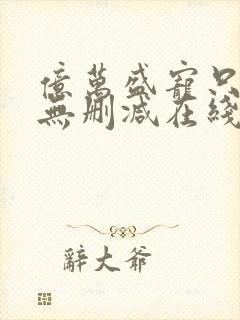 億萬盛寵只
無刪減在綫
辭大爺